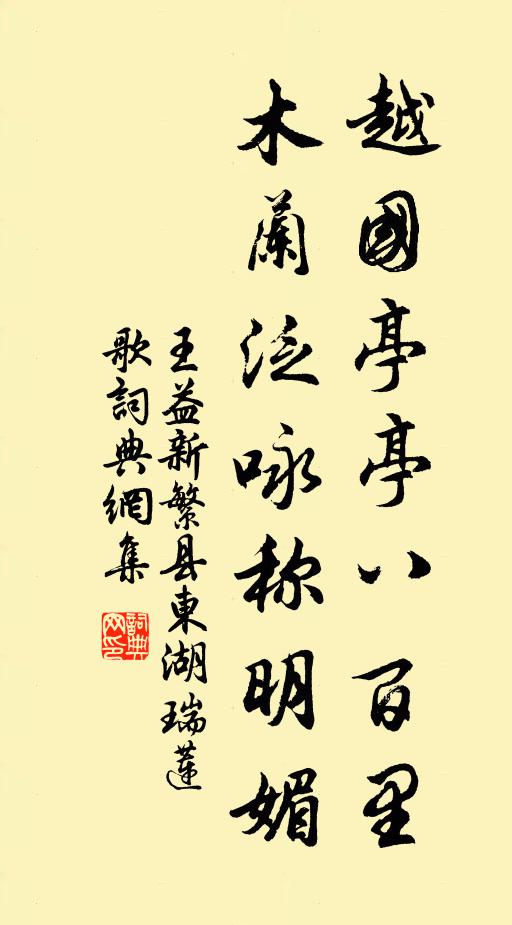 越國亭亭八百里
木蘭泛咏称明媚
王益新繁县東湖瑞蓮
歌詞典網集
詞典
网印